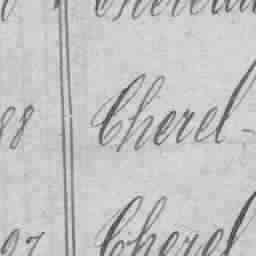 88 Cherel-
97 Cherel